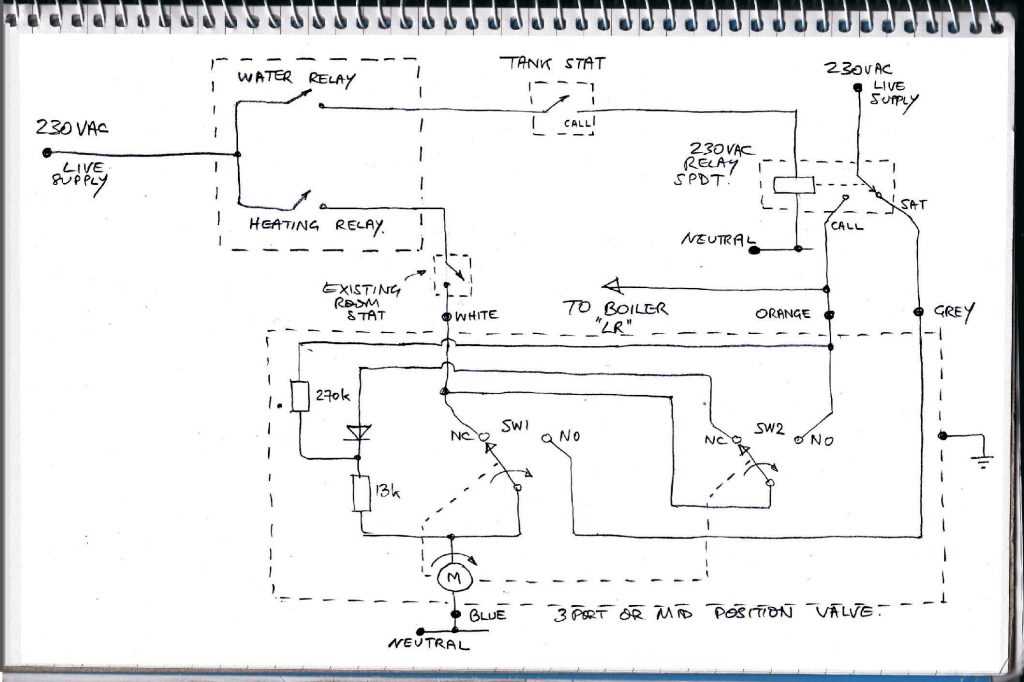 WATER RELAY
TANK STAT
230VAC
LIVE
SUPPLY
230VAC
LIVE
SUPPLY
CALL
230VAC
RELAY
SPDT.
SAT
HEATING RELAY.
CALL
NEUTRAL
EXISTING
ROOM
STAT
WHITE
TO BOILER
"LR"
ORANGE
GREY
270k
NC
SW1
NO
NC
SW2
NO
13k
M
BLUE
3 PORT OR MID POSITION VALVE.
NEUTRAL